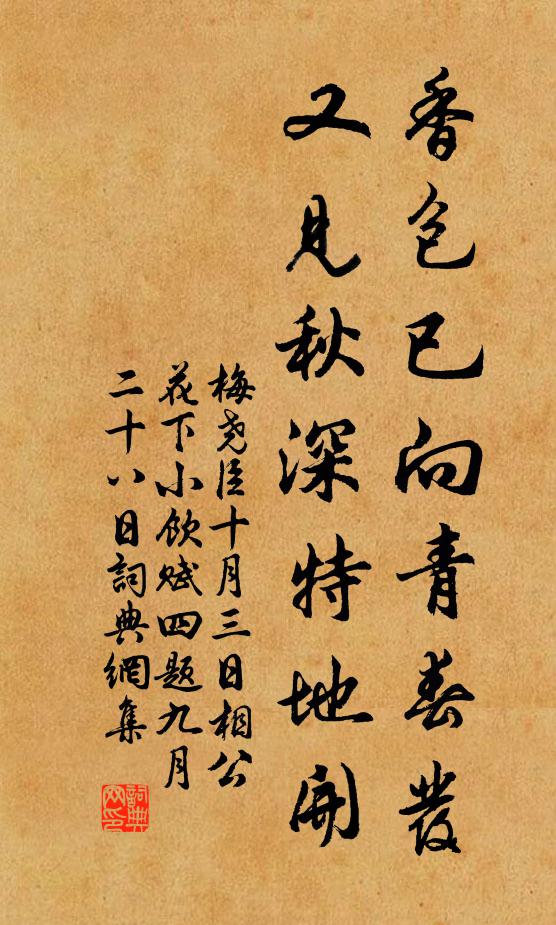 香包已向青春發
又見秋深特地開
梅堯臣十月三日相公
花下小飲賦四題九月
二十八日詞典網集
詞典網印